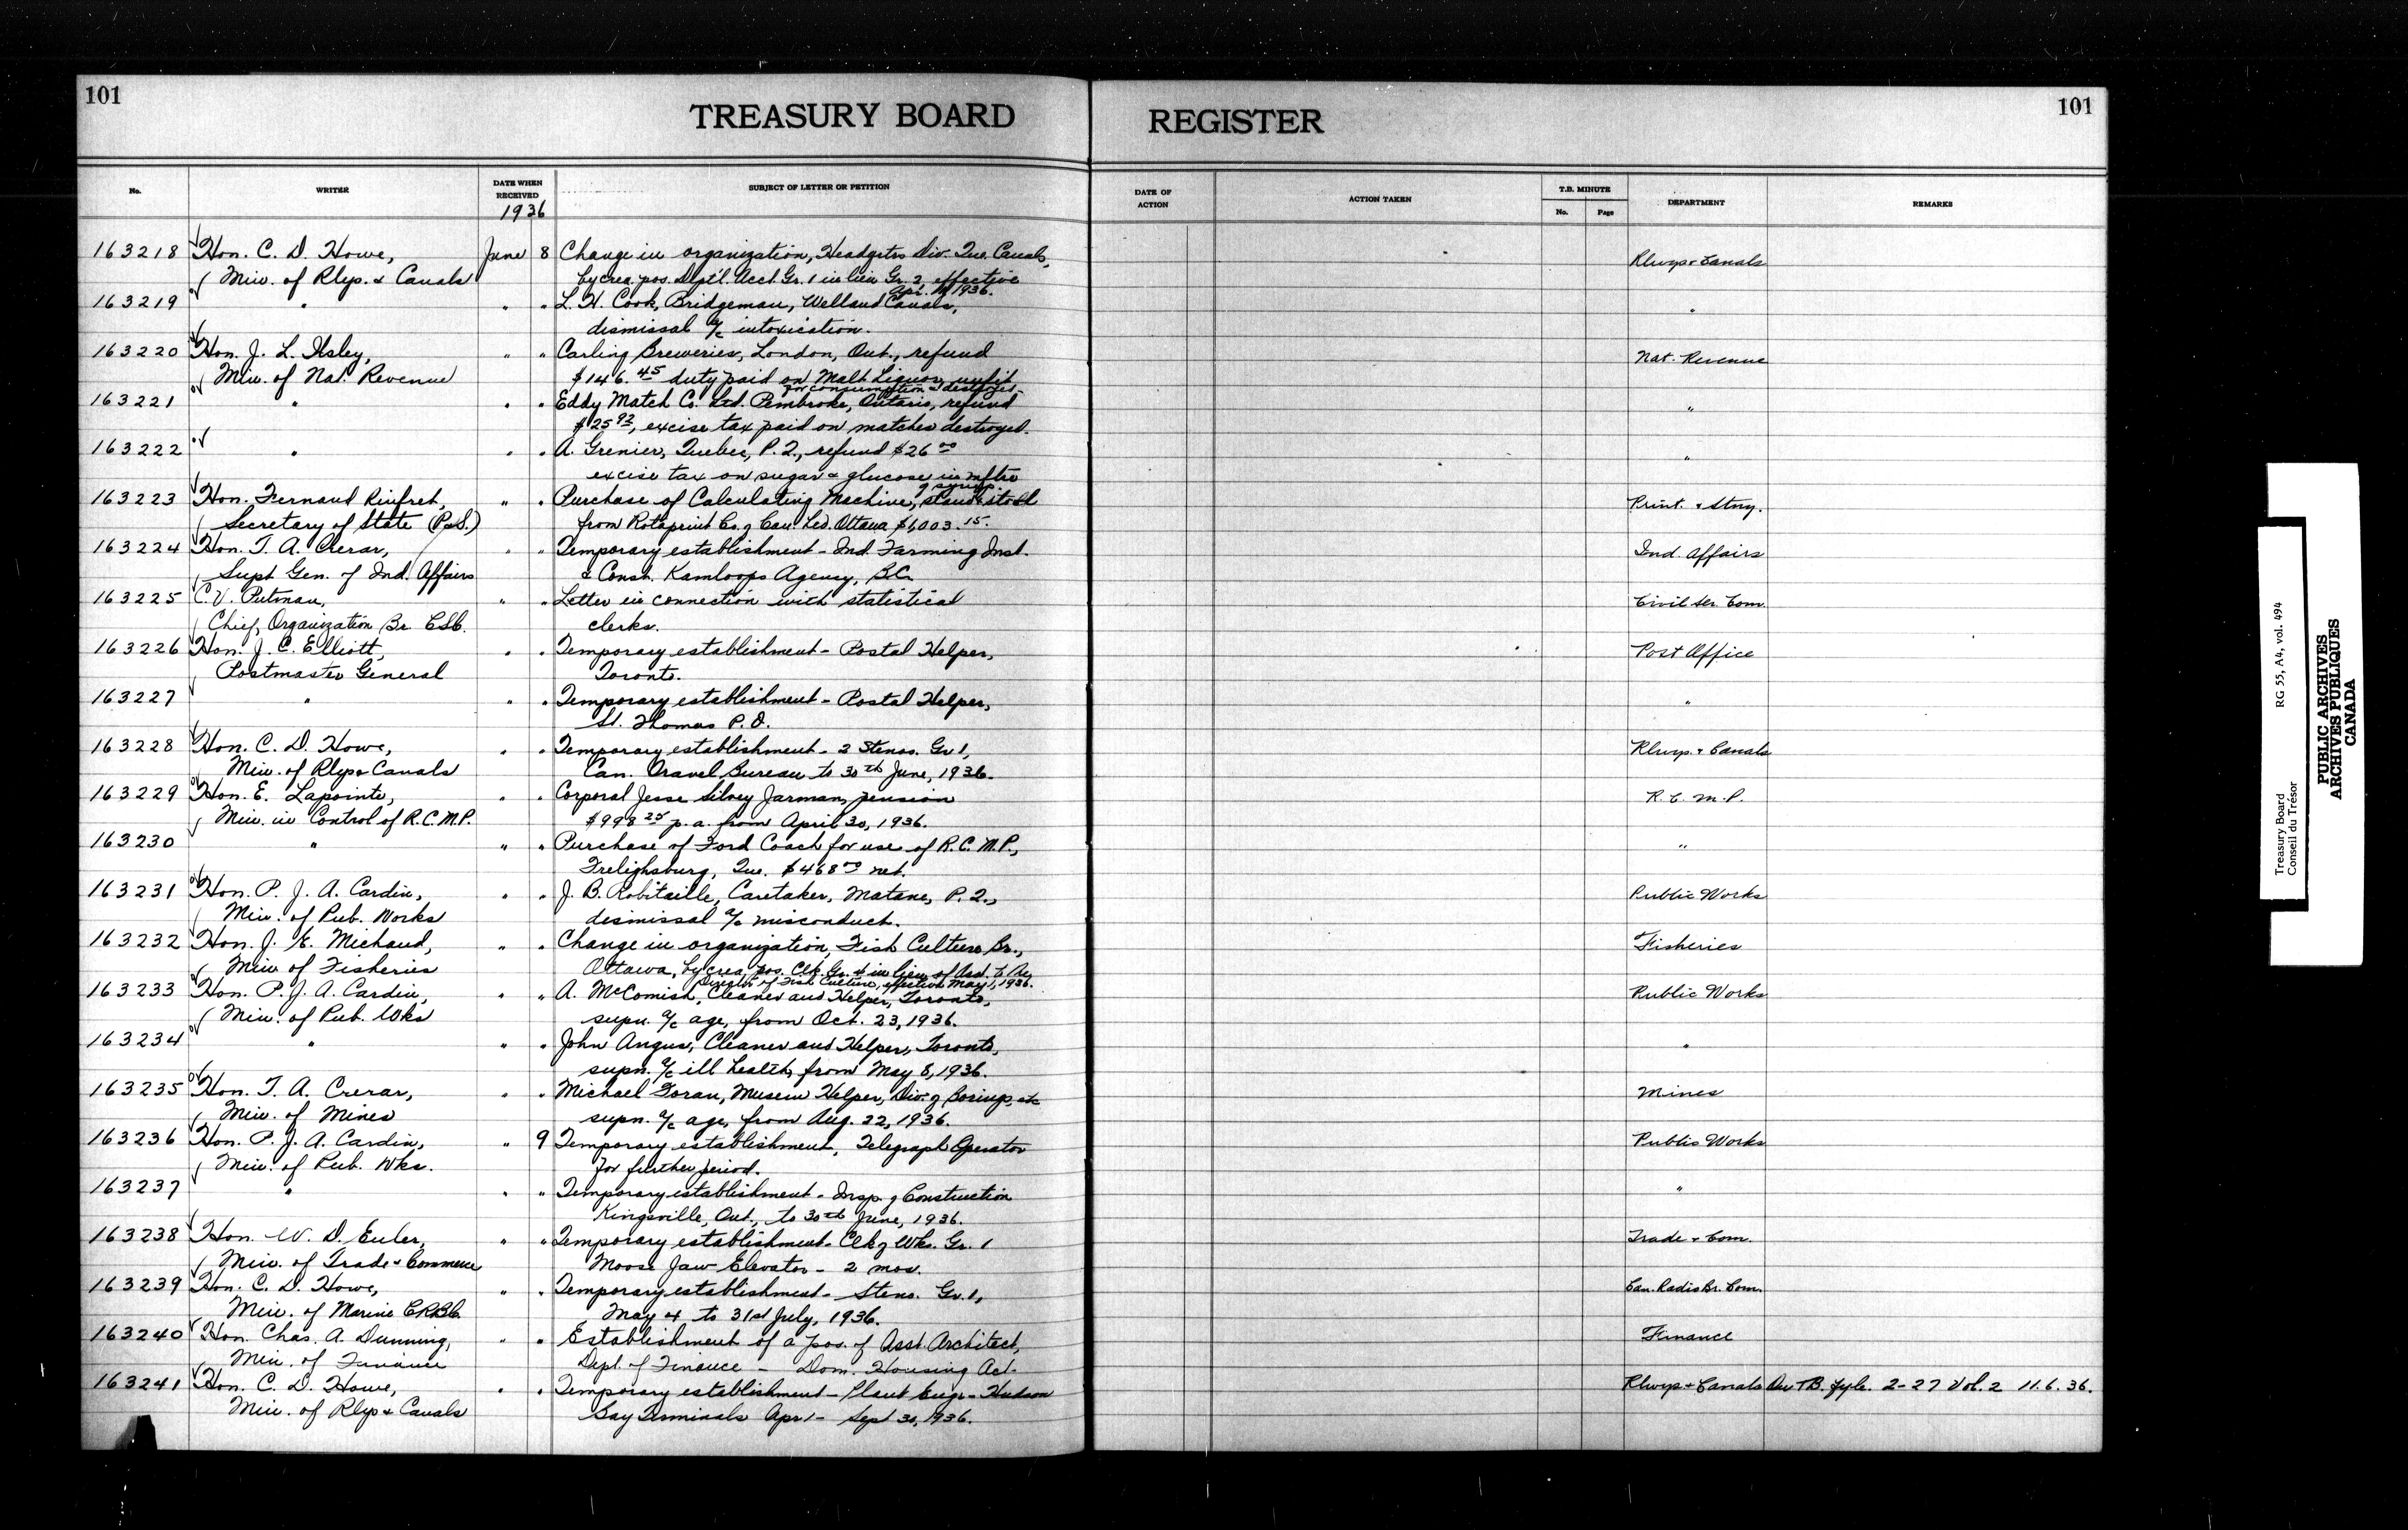 101
TREASURY BOARD REGISTER
101
No. WRITER DATE WHEN RECEIVED SUBJECT OF LETTER OR PETITION DATE OF ACTION ACTION TAKEN T.B. MINUTE No. Page DEPARTMENT REMARKS
1936
163218 Hon. C. D. Howe, June 8 Change in organization, Headqrtrs Div. Que. Canals, Rlwys & Canals
Min. of Rlys. & Canals by crea. pos. Dept'l. Acct. Gr. 1 in lieu Gr. 2, effective
Apr. 1, 1936.
163219 " " " L. H. Cook, Bridgeman, Welland Canals, "
dismissal a/c intoxication.
163220 Hon. J. L. Ilsley, " " Carling Breweries, London, Ont., refund Nat. Revenue
Min. of Nat. Revenue $146.45 duty paid on Malt Liquor unfit
for consumption & destroyed.
163221 " " " Eddy Match Co. Ltd. Pembroke, Ontario, refund "
$25.92, excise tax paid on matches destroyed.
163222 " " " A. Grenier, Quebec, P.Q., refund $26.00 "
excise tax on sugar & glucose in mftre
of syrup.
163223 Hon. Fernand Rinfret, " " Purchase of Calculating Machine, stand & stool Print. & Stny.
Secretary of State (P&S.) from Rotaprint Co. of Can. Ltd. Ottawa $1,003.15.
163224 Hon. T. A. Crerar, " " Temporary establishment - Ind. Farming Inst. Ind. Affairs
Supt Gen. of Ind. Affairs & Const. Kamloops Agency, B.C.
163225 C. V. Putman, " " Letter in connection with statistical Civil Ser. Com.
Chief, Organization Br. C.S.C. clerks.
163226 Hon. J. C. Elliott, " " Temporary establishment - Postal Helper, Post Office
Postmaster General Toronto.
163227 " " " Temporary establishment - Postal Helper, "
St. Thomas P.O.
163228 Hon. C. D. Howe, " " Temporary establishment - 2 Stenos. Gr 1, Rlwys. & Canals
Min. of Rlys & Canals Can. Travel Bureau to 30th June, 1936.
163229 Hon. E. Lapointe, " " Corporal Jesse Silvey Jarman, pension R.C.M.P.
Min. in Control of R.C.M.P. $998.25 p.a. from April 30, 1936.
163230 " " " Purchase of Ford Coach for use of R.C.M.P., "
Frelighsburg, Que. $468.00 net.
163231 Hon. P. J. A. Cardin, " " J. B. Robitaille, Caretaker, Matane, P.Q., Public Works
Min. of Pub. Works dismissal a/c misconduct.
163232 Hon. J. E. Michaud, " " Change in organization, Fish Culture Br., Fisheries
Min of Fisheries Ottawa, by crea. pos. Clk. Gr. 4 in lieu of Asst. to
Director of Fish Culture, effective May 1, 1936.
163233 Hon. P. J. A. Cardin, " " A. McComish, Cleaner and Helper, Toronto, Public Works
Min. of Pub. Wks supn. a/c age, from Oct. 23, 1936.
163234 " " " John Angus, Cleaner and Helper, Toronto, "
supn. a/c ill health, from May 8, 1936.
163235 Hon. T. A. Crerar, " " Michael Foran, Museum Helper, Div. of Borings, etc Mines
Min. of Mines supn. a/c age, from Aug. 22, 1936.
163236 Hon. P. J. A. Cardin, " 9 Temporary establishment, Telegraph Operator Public Works
Min. of Pub. Wks. for further period.
163237 " " " Temporary establishment - Insp. of Construction "
Kingsville, Ont., to 30th June, 1936.
163238 Hon. W. D. Euler, " " Temporary establishment - Clk of Wks. Gr. 1 Trade & Com.
Min. of Trade & Commerce Moose Jaw Elevator - 2 mos.
163239 Hon. C. D. Howe, " " Temporary establishment - Steno. Gr. 1, Can. Radio Br. Com.
Min. of Marine C.R.B.C. May 4 to 31st July, 1936.
163240 Hon. Chas. A. Dunning, " " Establishment of a pos. of Asst. Architect, Finance
Min. of Finance Dept. of Finance - Dom. Housing Act.
163241 Hon. C. D. Howe, " " Temporary establishment - Plant Engr - Hudson Rlwys & Canals On T.B. fyle. 2-27 Vol. 2 11.6.36.
Min. of Rlys & Canals Bay Terminals Apr 1 - Sept 30, 1936.
Treasury Board RG 55, A4, vol. 494
Conseil du Trésor
PUBLIC ARCHIVES
ARCHIVES PUBLIQUES
CANADA